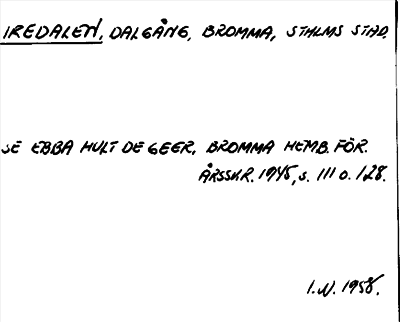 IREDALEN, DALGÅNG, BROMMA, STHLMS STAD.
SE EBBA HULT DE GEER, BROMMA HEMB. FÖR.
ÅRSSKR. 1945, s. 111 o. 128.
I.N. 1958.